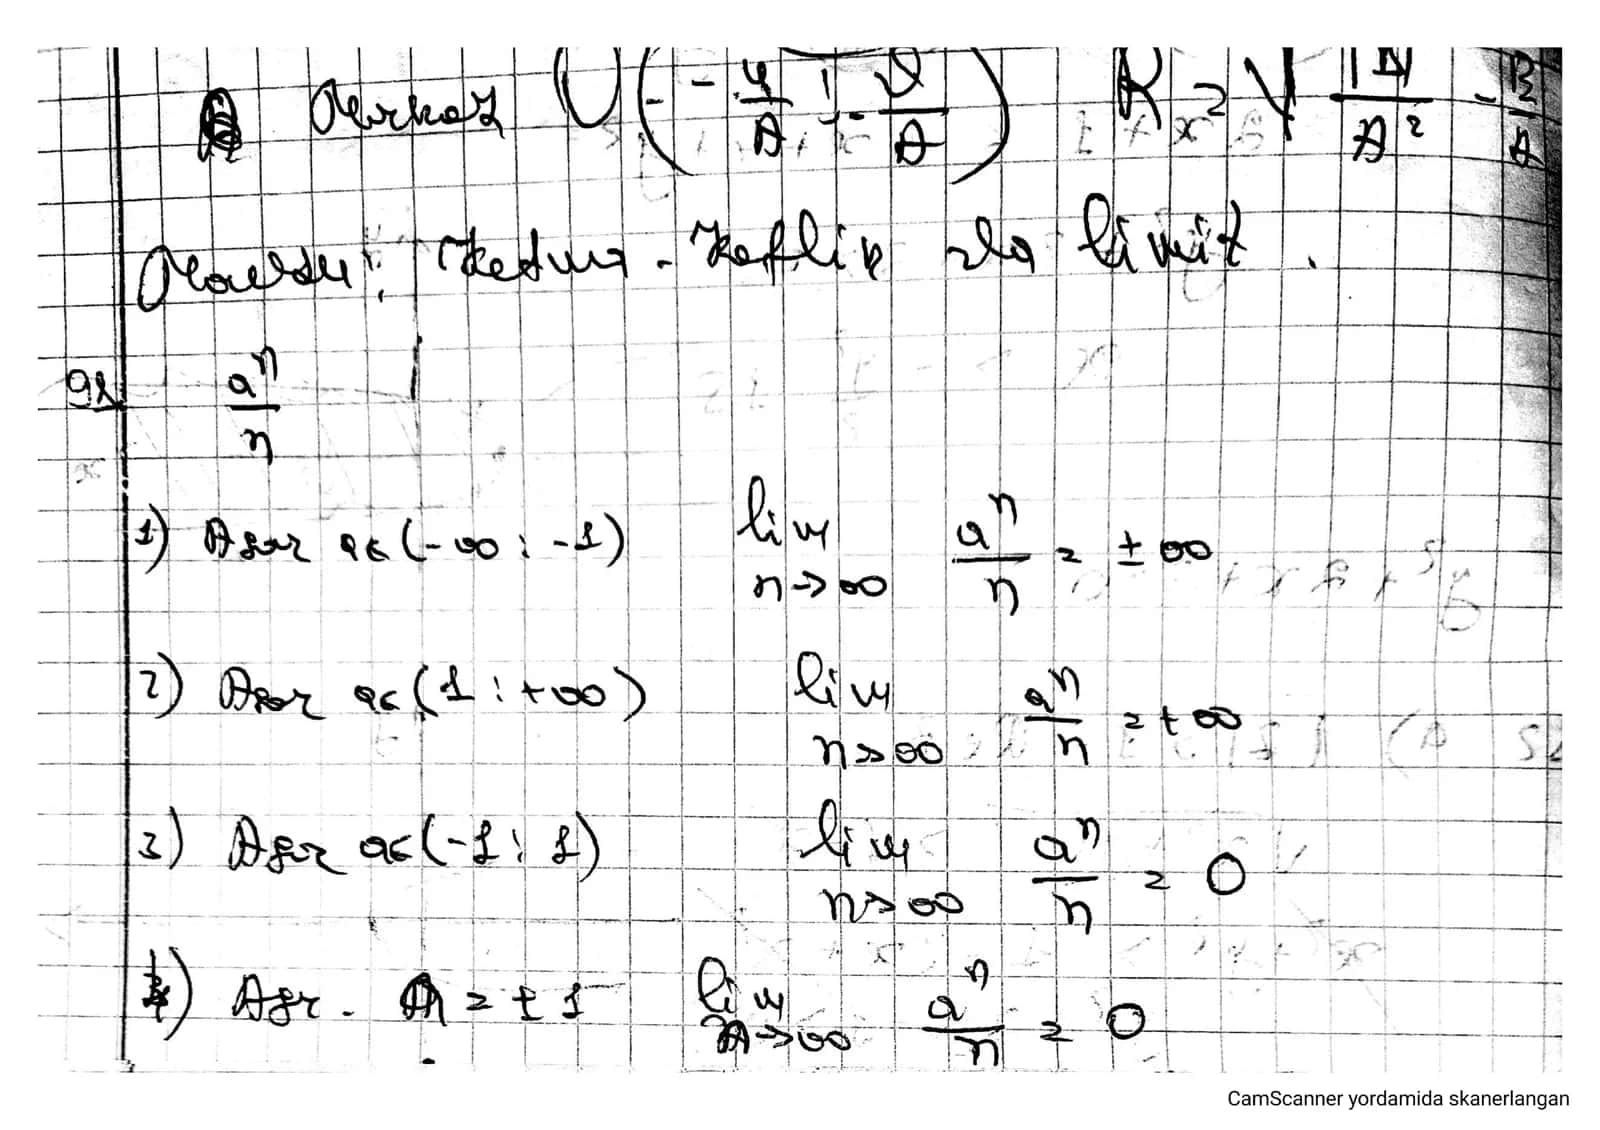 Markaz O(-4/A ; -D/A) R = √ |Δ|/A² - B/A
Mavzu: Ketma-Ketlik va limit.
92 a^n/n
1) Agar a∈(-∞ : -1) lim n→∞ a^n/n = ±∞
2) Agar a∈(1 : +∞) lim n→∞ a^n/n = +∞
3) Agar a∈(-1 : 1) lim n→∞ a^n/n = 0
4) Agr. a = ±1 lim n→∞ a^n/n = 0
CamScanner yordamida skanerlangan